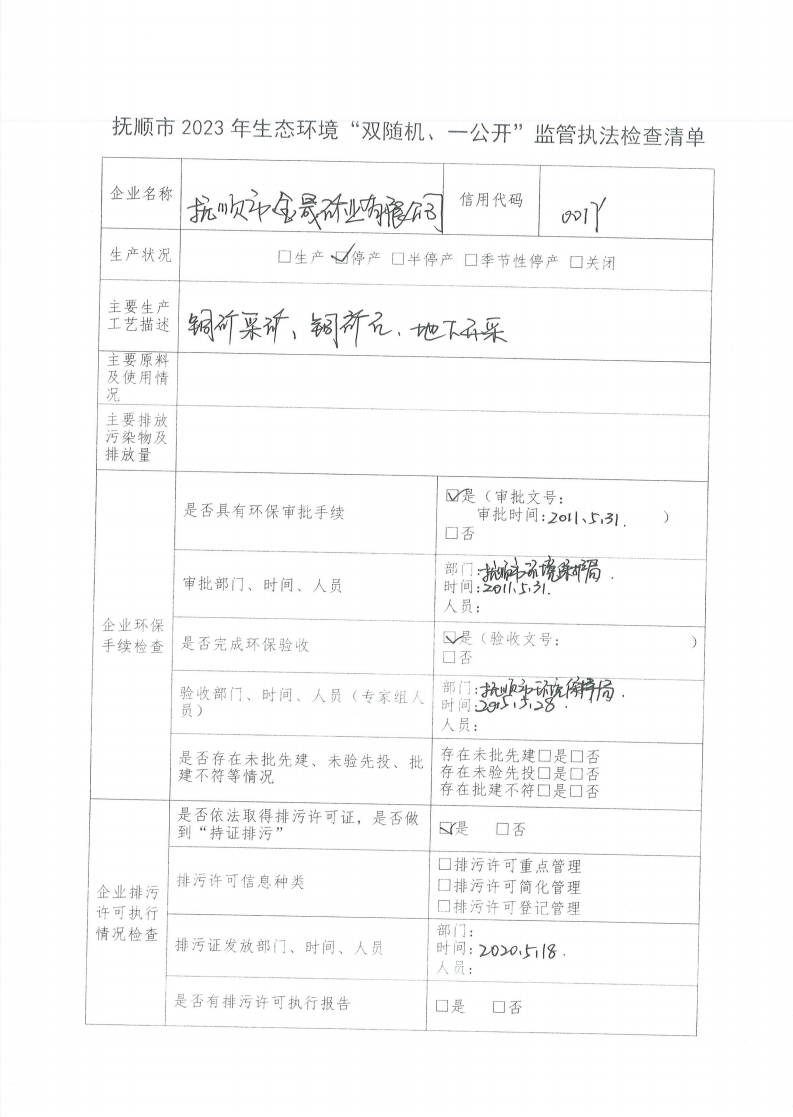 抚顺市 2023 年生态环境“双随机、一公开”监管执法检查清单
企业名称
抚顺市金晟矿业有限公司
信用代码
生产状况
□生产 ☑停产 □半停产 □季节性停产 □关闭
主要生产
工艺描述
铜矿采矿、铜矿石、地下开采
主要原料
及使用情
况
主要排放
污染物及
排放量
企业环保
手续检查
是否具有环保审批手续
☑是（审批文号：
审批时间：2011.5.31. ）
□否
审批部门、时间、人员
部门：抚顺市环境保护局.
时间：2011.5.31.
人员：
是否完成环保验收
☑是（验收文号： ）
□否
验收部门、时间、人员（专家组人
员）
部门：抚顺市环境保护局.
时间：2015.5.28.
人员：
是否存在未批先建、未验先投、批
建不符等情况
存在未批先建□是□否
存在未验先投□是□否
存在批建不符□是□否
企业排污
许可执行
情况检查
是否依法取得排污许可证，是否做
到“持证排污”
☑是 □否
排污许可信息种类
□排污许可重点管理
□排污许可简化管理
□排污许可登记管理
排污证发放部门、时间、人员
部门：
时间：2020.5.18.
人员：
是否有排污许可执行报告
□是 □否